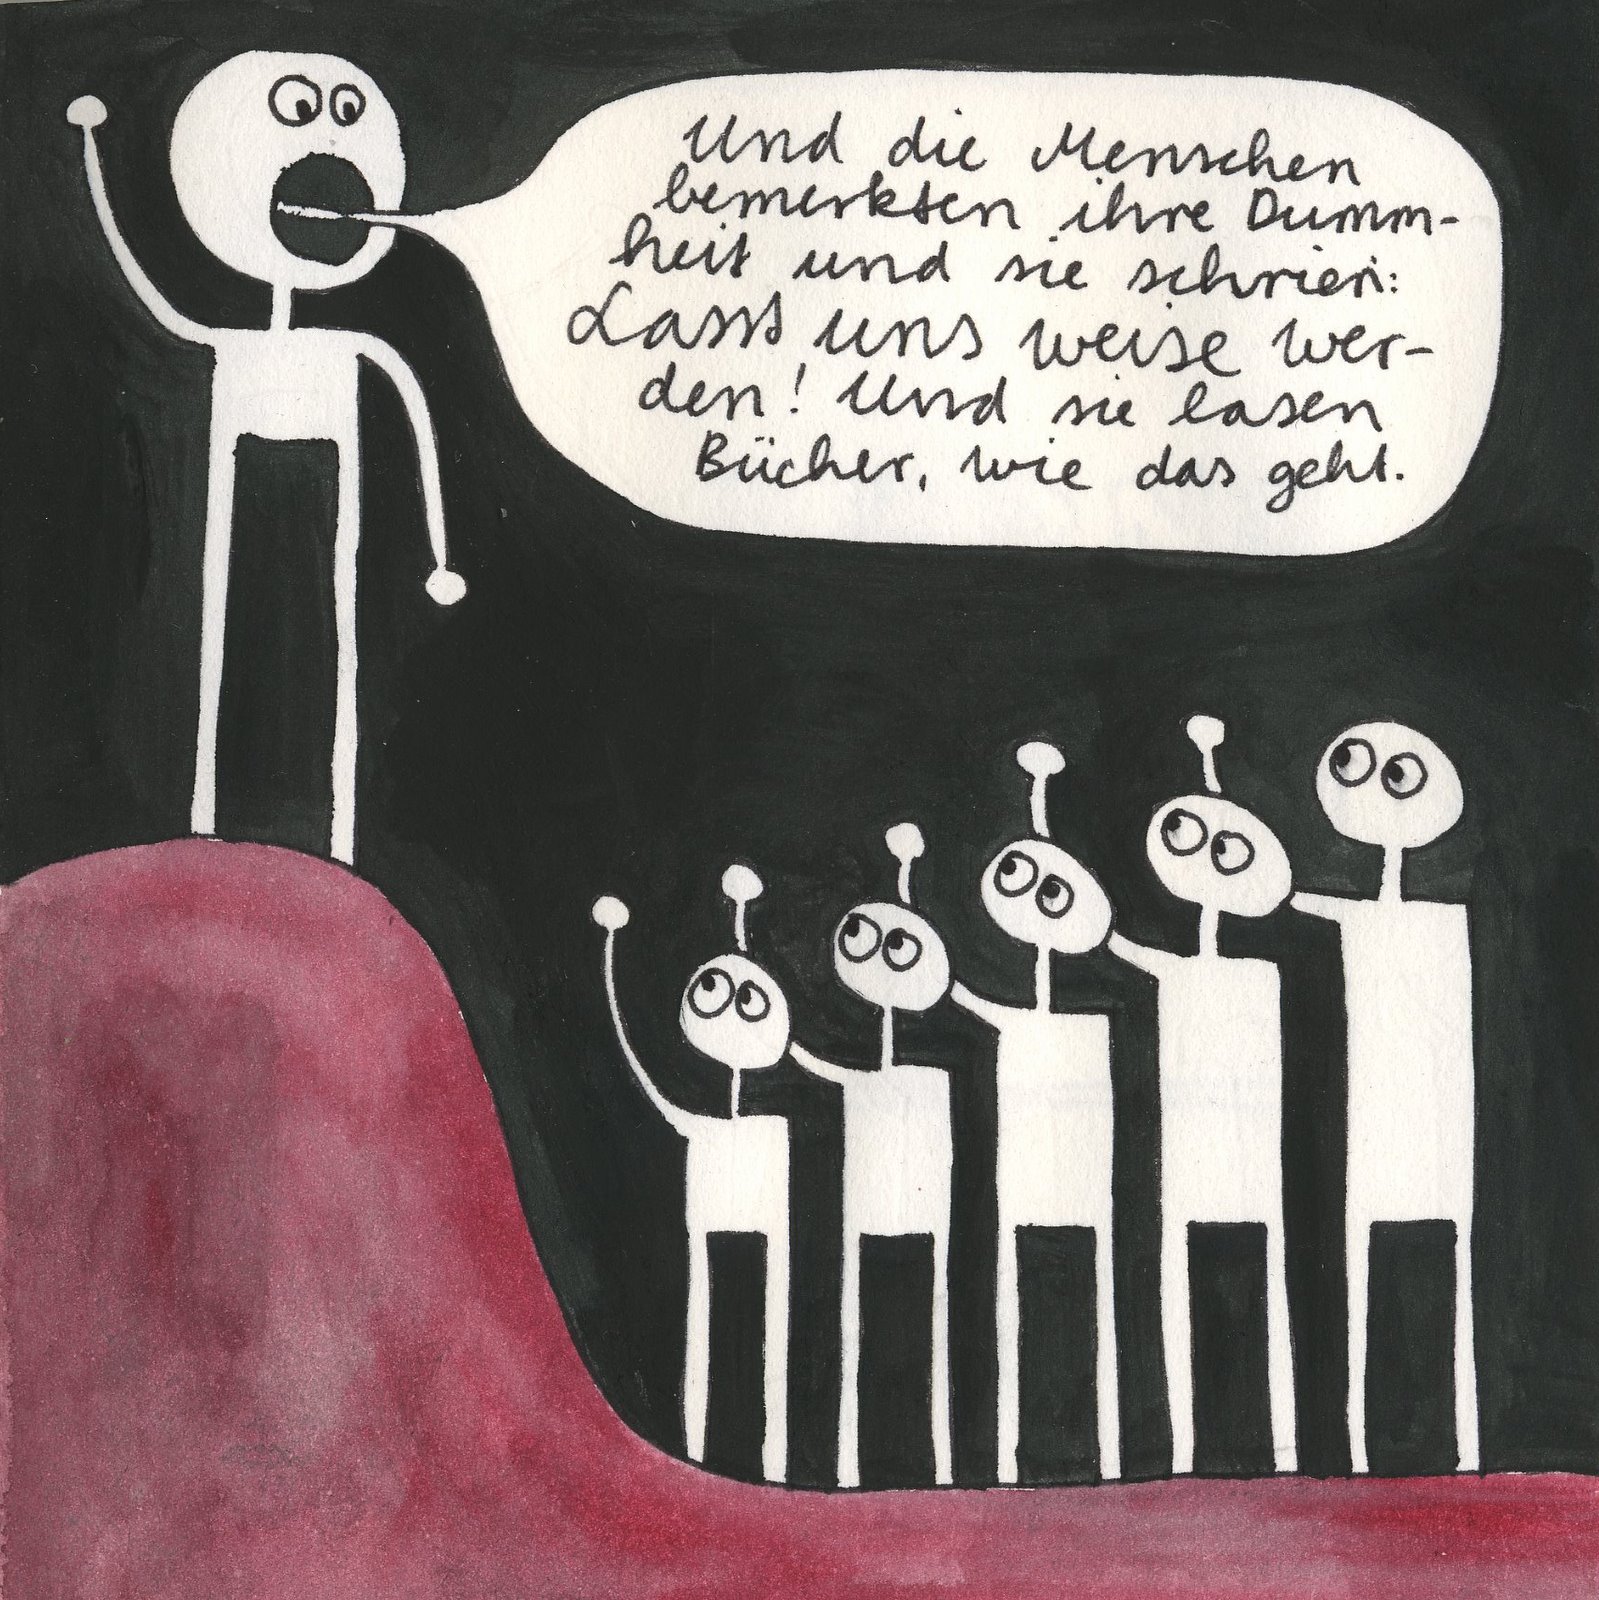 Und die Menschen
bemerkten ihre Dumm-
heit und sie schrien:
Lasst uns weise wer-
den! Und sie lasen
Bücher, wie das geht.